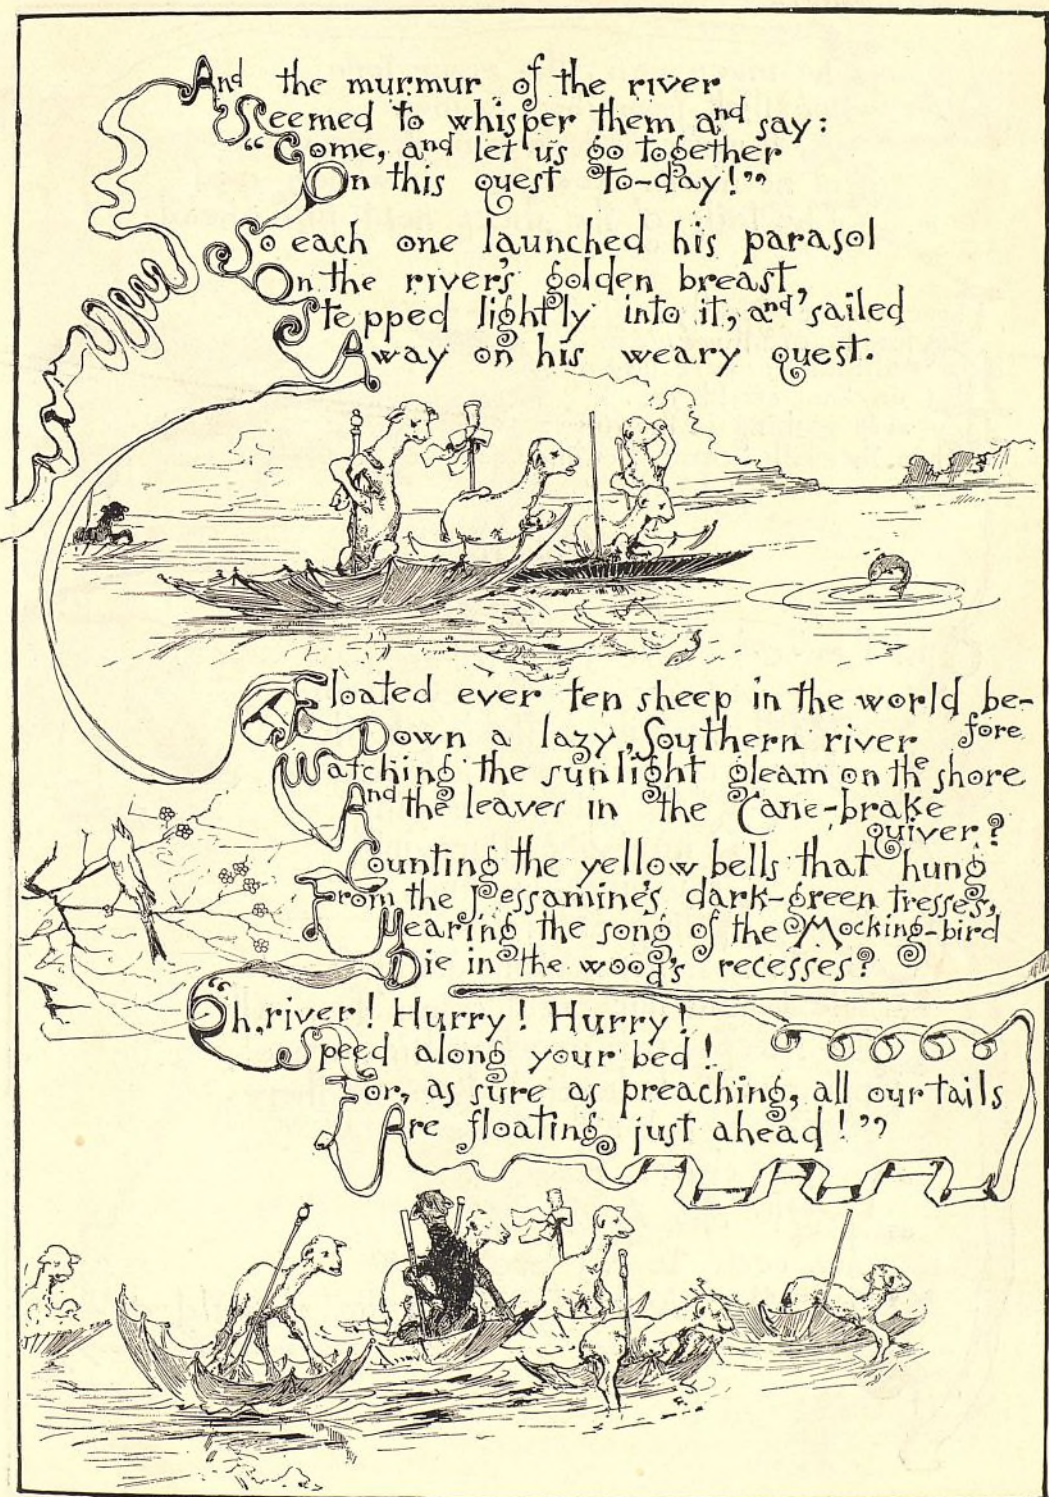 And the murmur of the river
Seemed to whisper them and say:
"Come, and let us go together
On this quest to-day!"
So each one launched his parasol
On the river's golden breast,
Stepped lightly into it, and sailed
Away on his weary quest.
Floated ever ten sheep in the world be-
fore
Down a lazy, Southern river
Watching the sunlight gleam on the shore
And the leaves in the Cane-brake
quiver?
Counting the yellow bells that hung
From the Jessamine's dark-green tresses,
Hearing the song of the Mocking-bird
Die in the wood's recesses?
"Oh, river! Hurry! Hurry!
Speed along your bed!
For, as sure as preaching, all our tails
Are floating just ahead!"